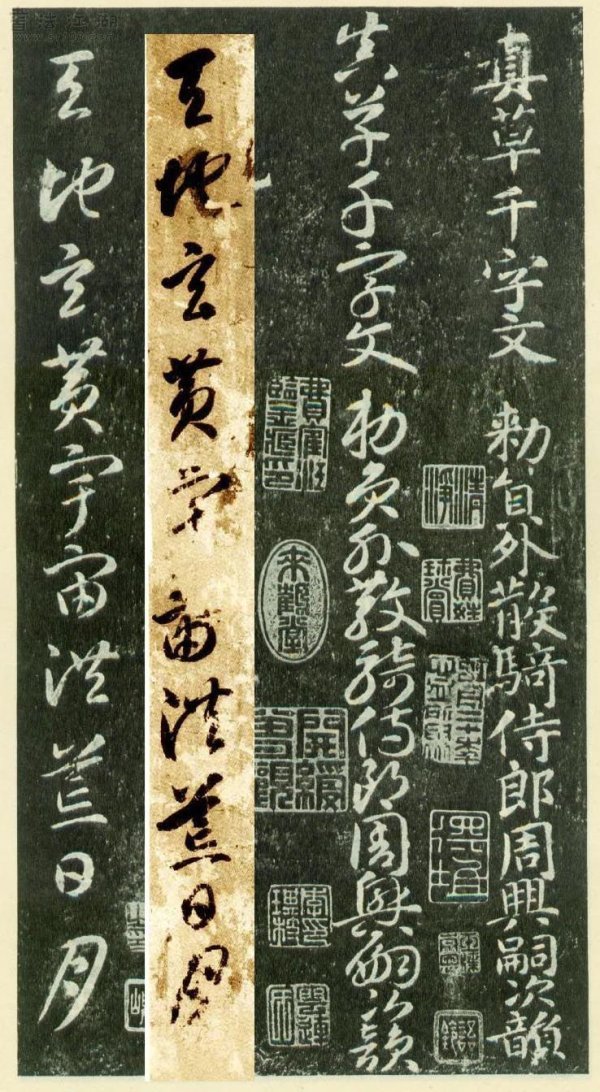 真草千字文 勅員外散騎侍郎周興嗣次韻
真草千字文 勅員外散騎侍郎周興嗣次韻
天地玄黃宇宙洪荒日月
天地玄黃宇宙洪荒日月
來鶴堂